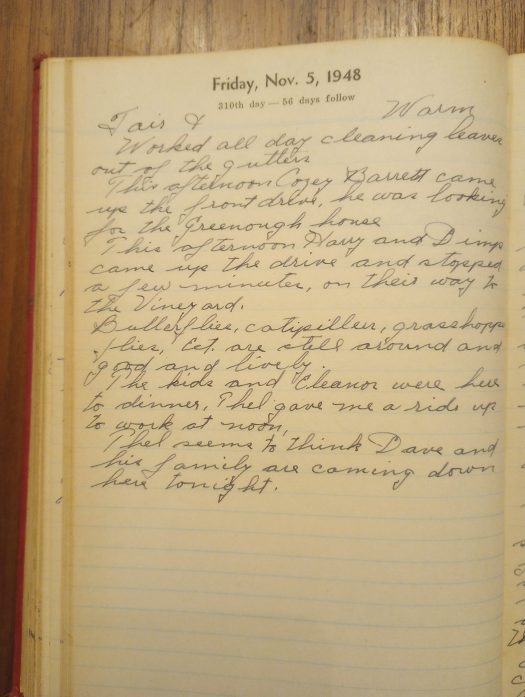 Friday, Nov. 5, 1948
310th day — 56 days follow
Fair & Warm
Worked all day cleaning leaves
out of the gutters
This afternoon Cozey Barrett came
up the front drive, he was looking
for the Greenough house
This afternoon Harry and Dimps
came up the drive and stopped
a few minutes, on their way to
the Vineyard.
Butterflies, catipillers, grasshoppe
flies, Ect. are still around and
good and lively.
The kids and Eleanor were here
to dinner, Thel gave me a ride up
to work at noon,
Thel seems to think Dave and
his family are coming down
here tonight.